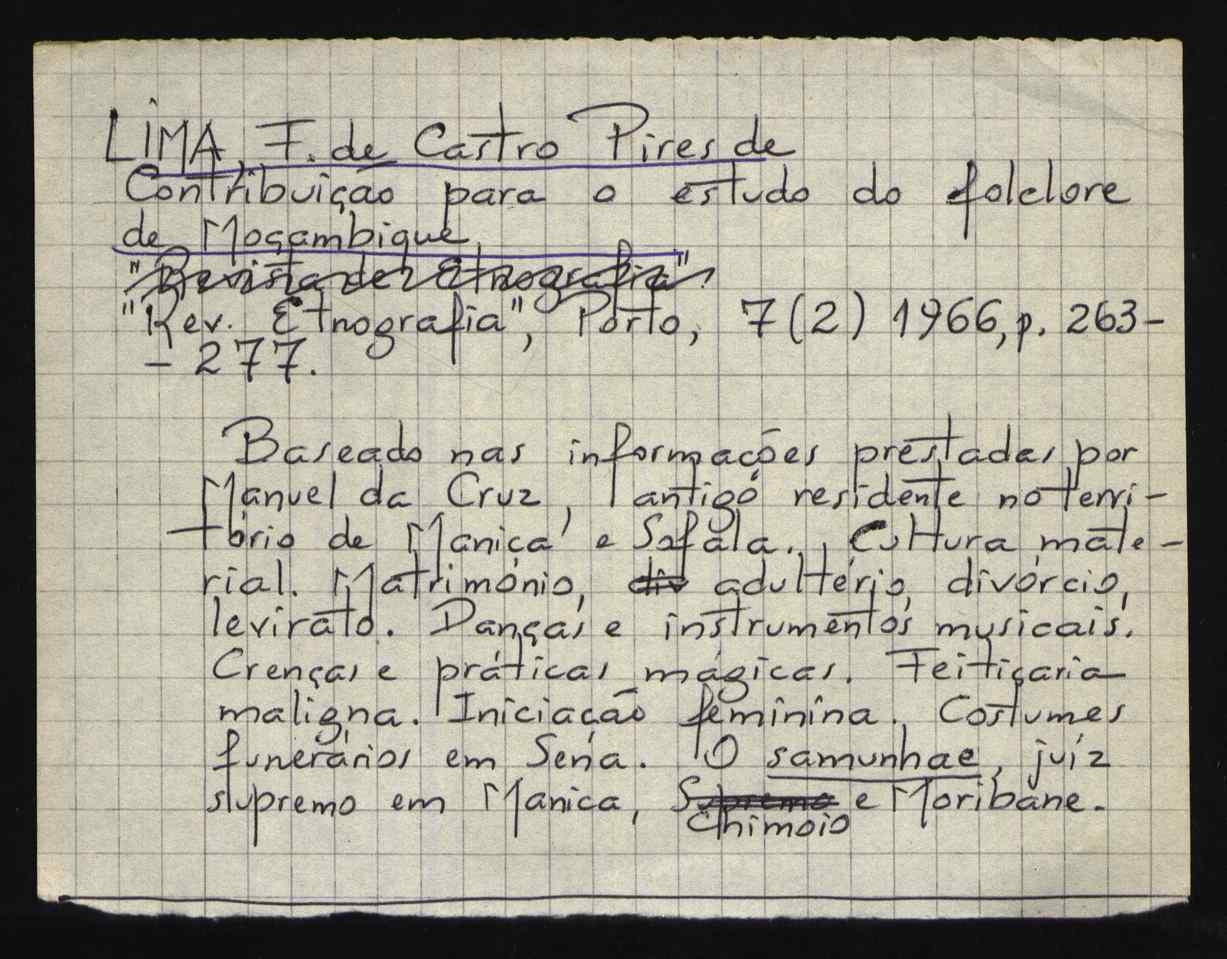 LIMA, F. de Castro Pires de
Contribuição para o estudo do folclore
de Moçambique,
"Revista de Etnografia",
"Rev. Etnografia", Porto, 7(2) 1966, p. 263-
- 277.
Baseado nas informações prestadas por
Manuel da Cruz, antigo residente no terri-
tório de Manica e Sofala. Cultura mate-
rial. Matrimónio, div adultério, divórcio,
levirato. Danças e instrumentos musicais.
Crenças e práticas mágicas. Feitiçaria
maligna. Iniciação feminina. Costumes
funerários em Sena. O samunhae, juiz
supremo em Manica, Supremo e Moribane.
Chimoio